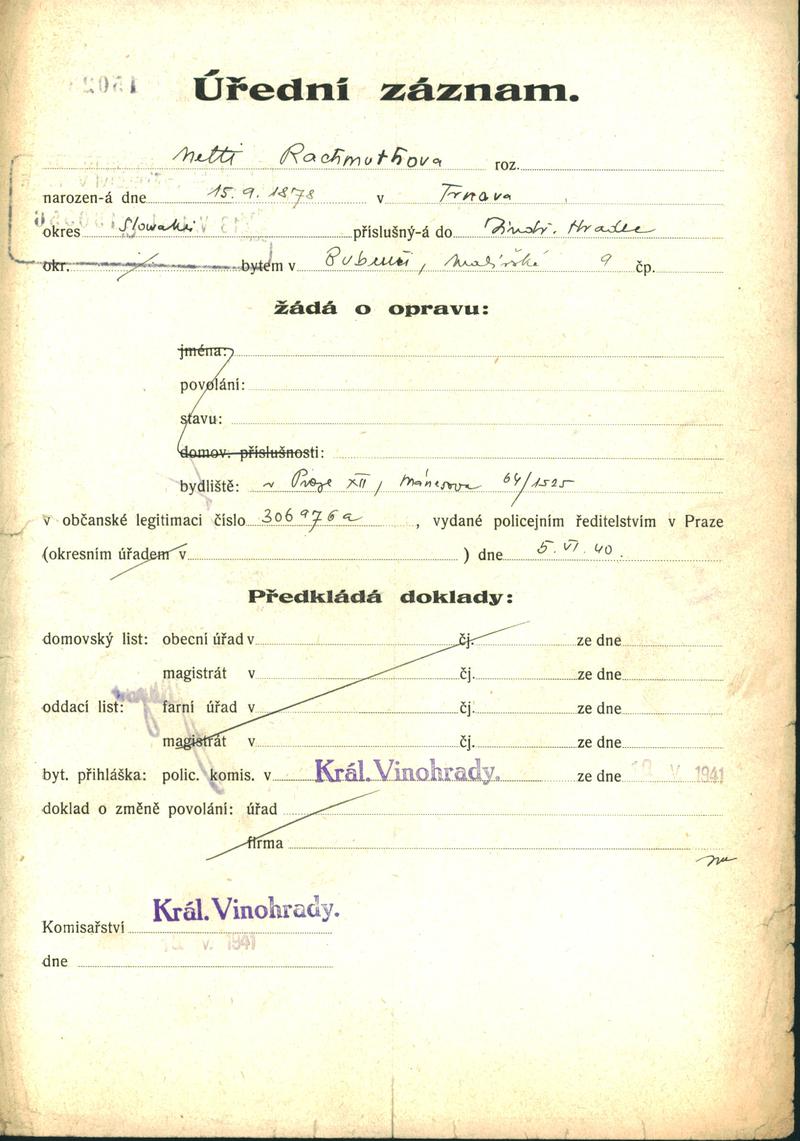 Úřední záznam.
Netti Rachmuthova roz.
narozen-á dne 15. 9. 1878 v Trnava
okres Slowakei příslušný-á do Jindř. Hradec
okr. bytem v Bubenči, Malířská 9 čp.
žádá o opravu:
jména:
povolání:
stavu:
domov. příslušnosti:
bydliště: v Praze XII, Mánesova 64/1525
v občanské legitimaci číslo 306976a, vydané policejním ředitelstvím v Praze
(okresním úřadem v ) dne 5. VI. 40.
Předkládá doklady:
domovský list: obecní úřad v čj. ze dne
magistrát v čj. ze dne
oddací list: farní úřad v čj. ze dne
magistrát v čj. ze dne
byt. přihláška: polic. komis. v Král. Vinohrady. ze dne V 1941
doklad o změně povolání: úřad
firma
Komisařství Král. Vinohrady.
V. 1941
dne